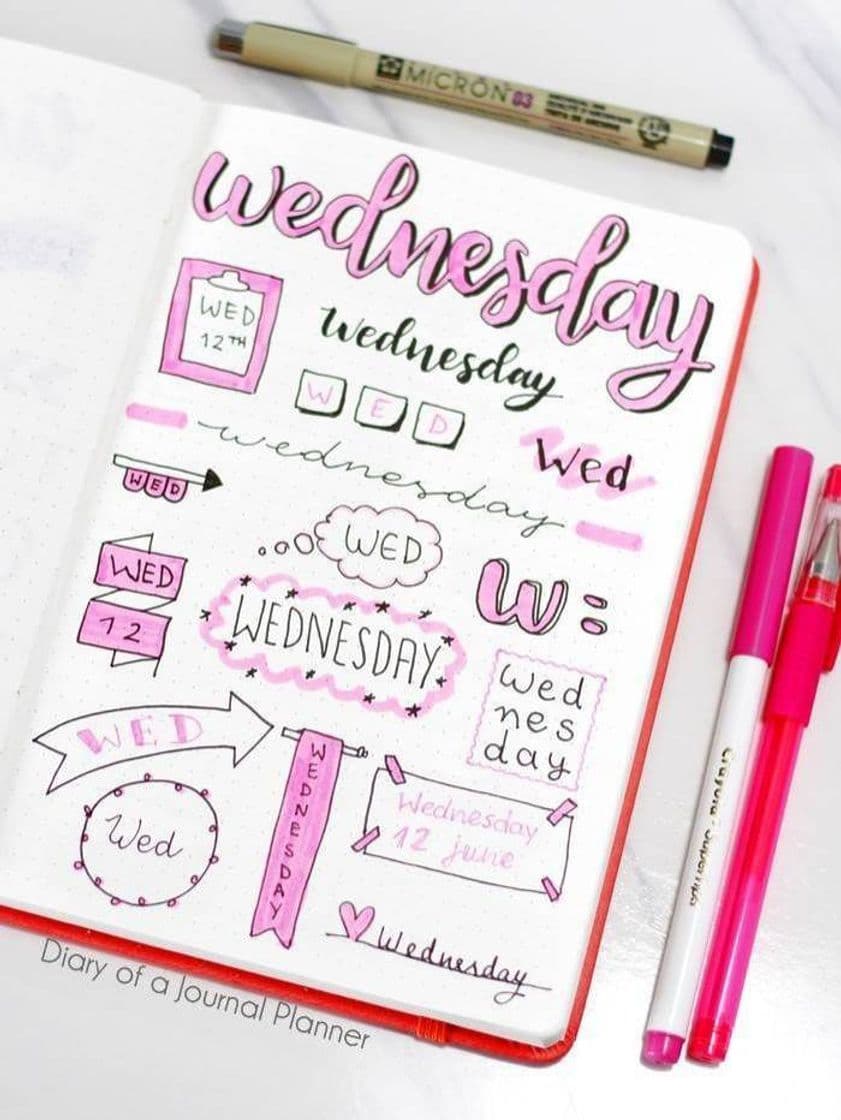 MICRON 03
wednesday
WED
12TH
Wednesday
W E D
Wed
wednesday
WED
WED
W:
WED
12
WEDNESDAY
wed
nes
day
WED
WEDNESDAY
Wednesday
12 june
Wed
Wednesday
Crayola
Diary of a Journal Planner